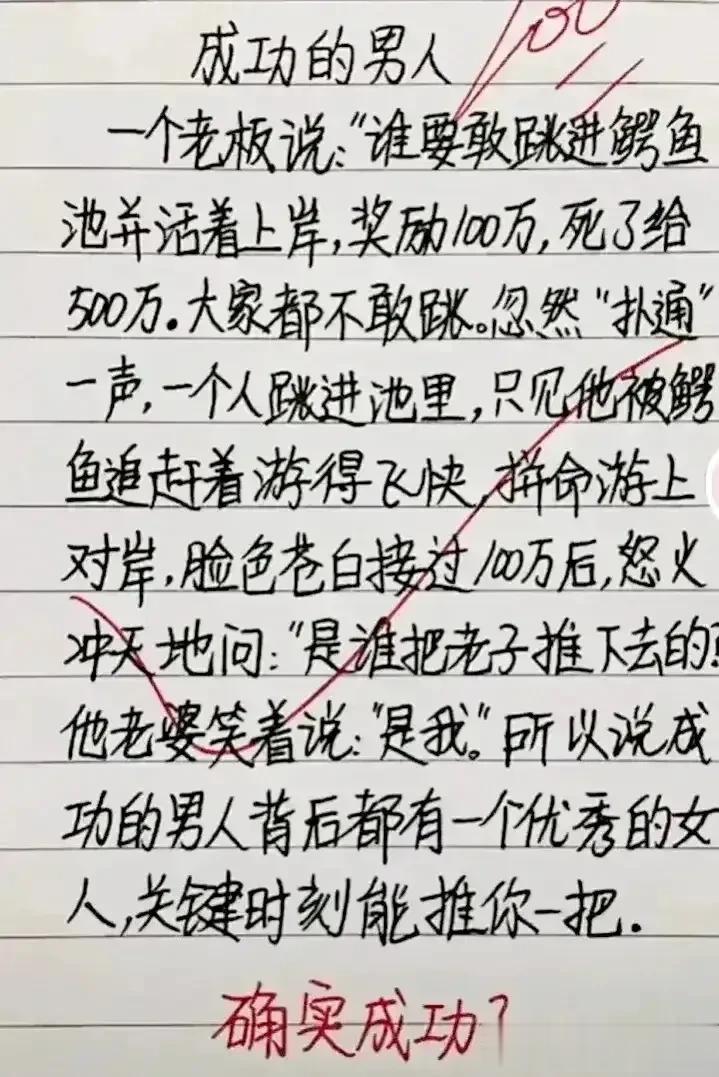 100
成功的男人
一个老板说:“谁要敢跳进鳄鱼
池并活着上岸,奖励100万,死了给
500万。大家都不敢跳。忽然“扑通”
一声,一个人跳进池里,只见他被鳄
鱼追赶着游得飞快,拼命游上
对岸,脸色苍白接过100万后,怒火
冲天地问:“是谁把老子推下去的
他老婆笑着说:“是我。”所以说成
功的男人背后都有一个优秀的女
人,关键时刻能推你一把.
确实成功?